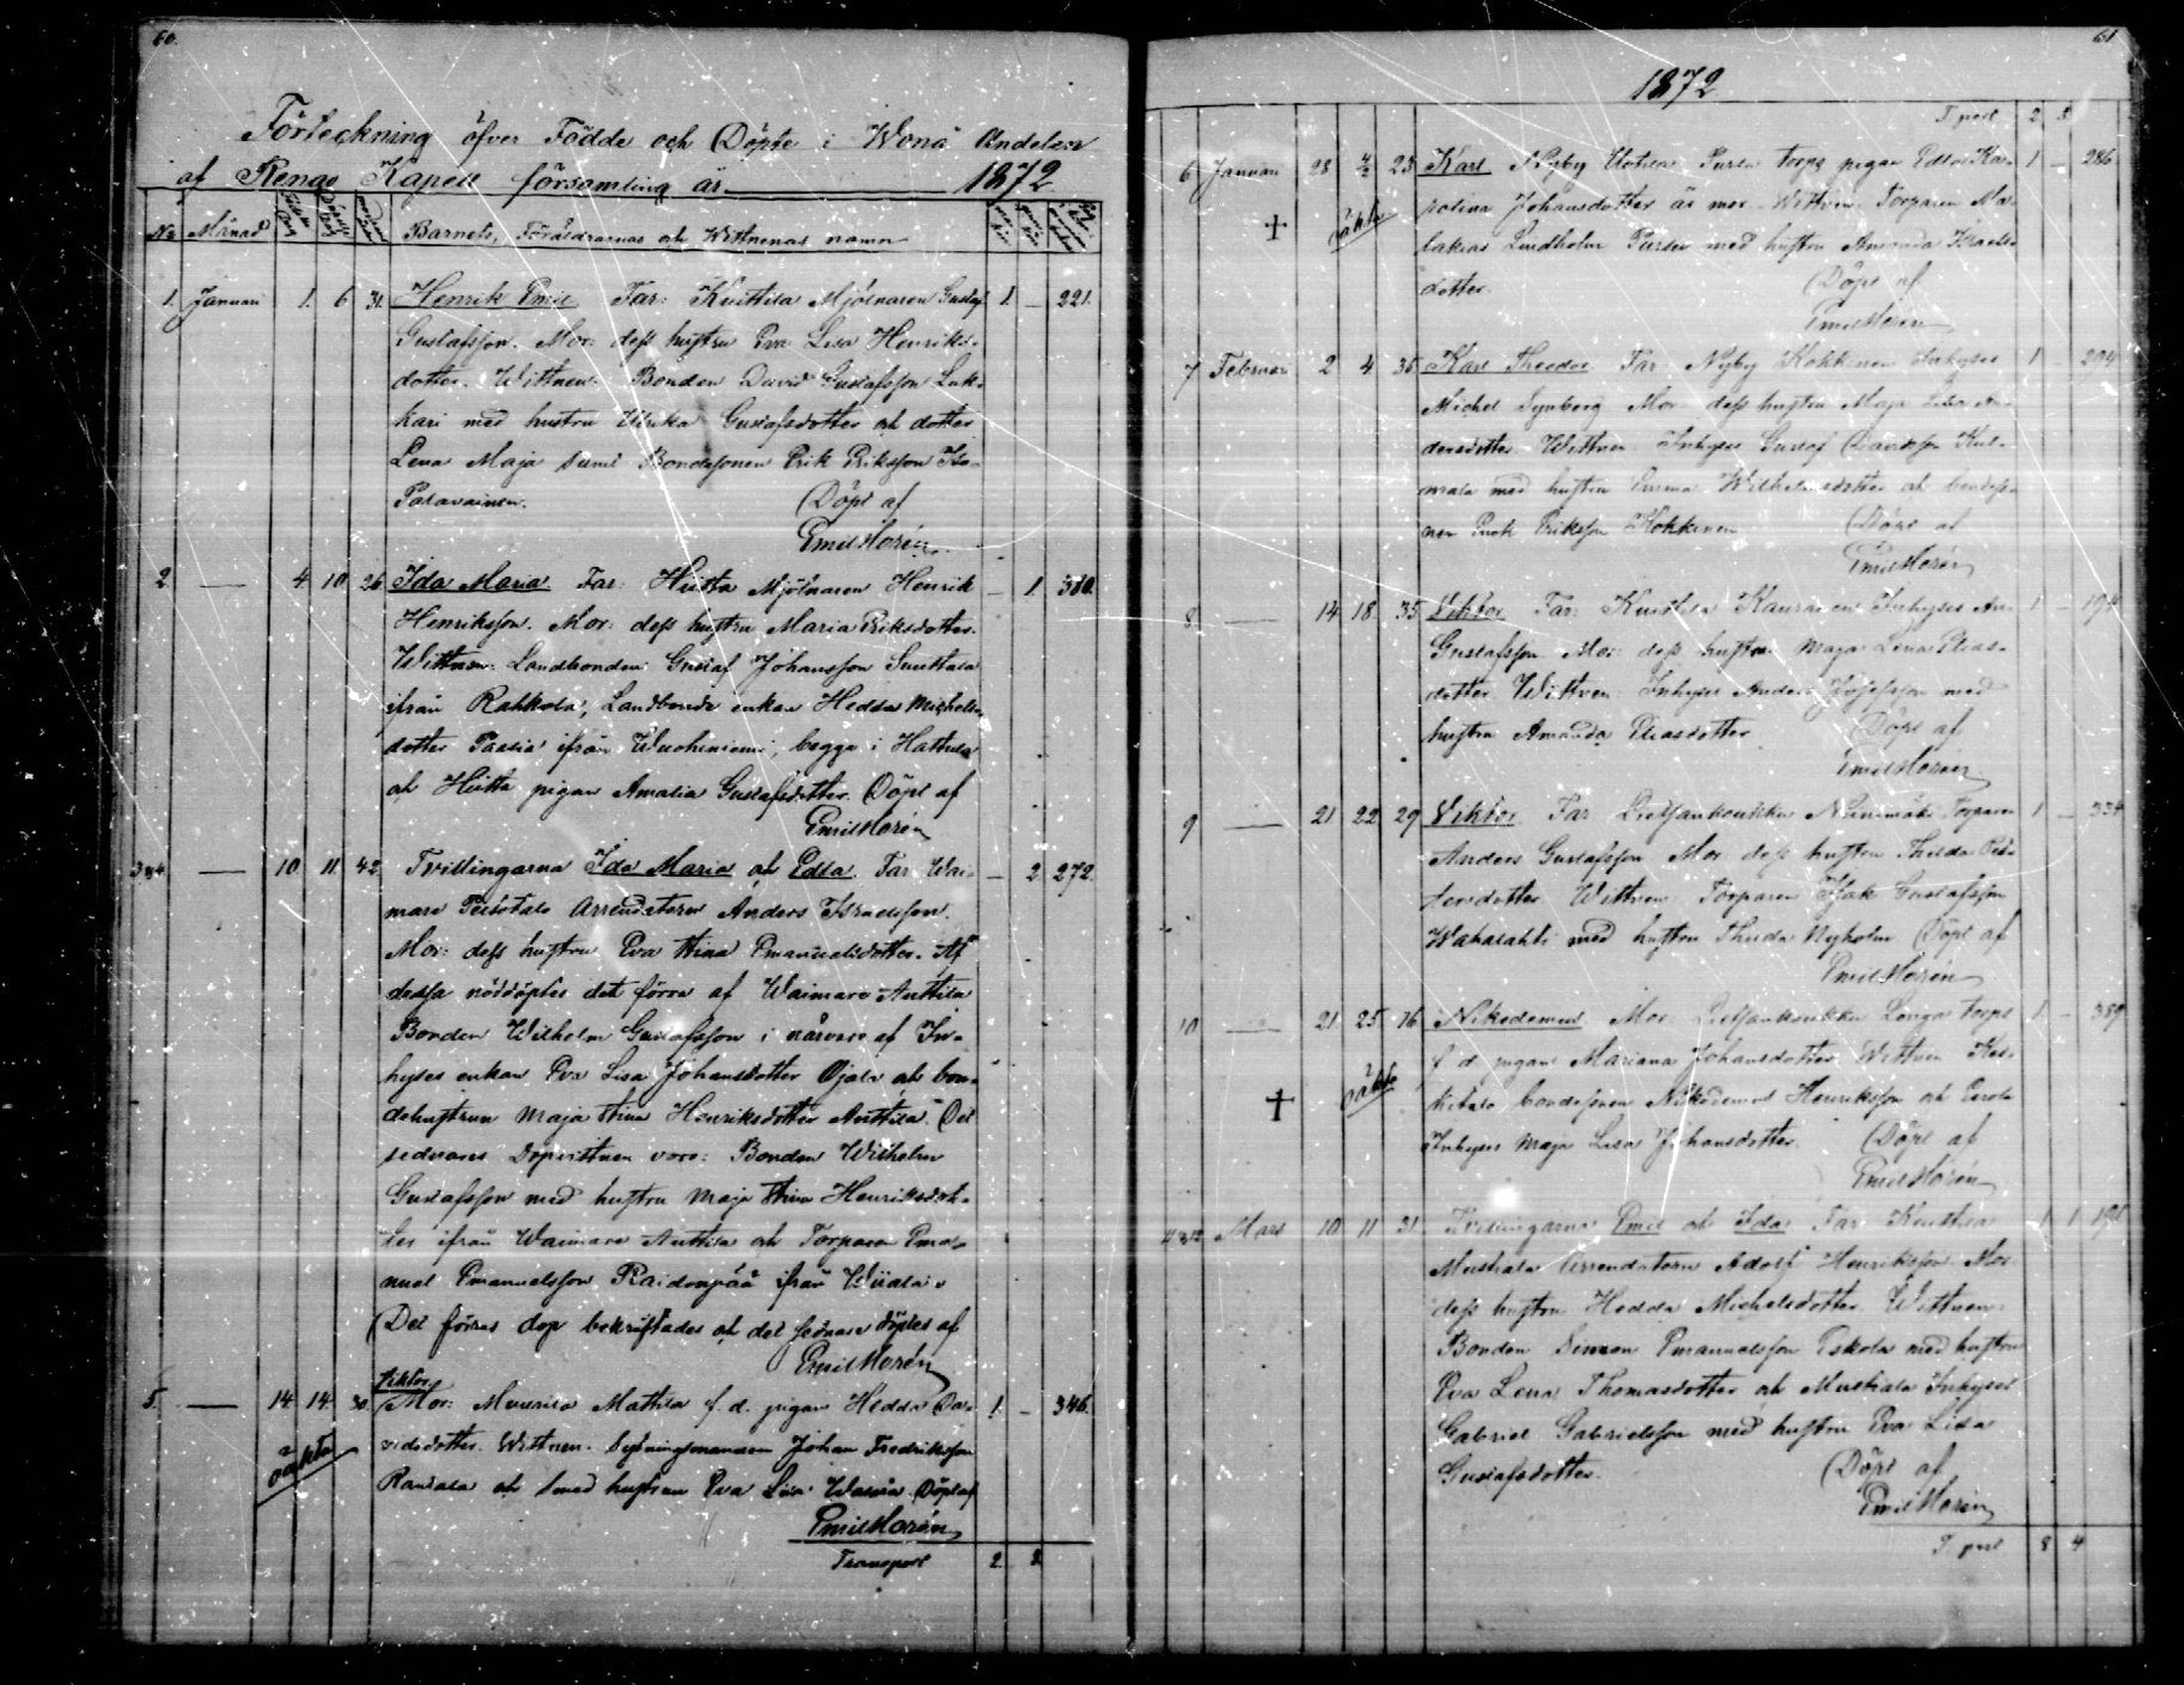 60.
Förteckning öfver Födde och Döpte i Wonå Andelen
af Rengo Kapell församling år 1872
No Månad Barnets, Föräldrarnas och Wittnenas namn
1. Januari 1. 6 31. Henrik Emil Far: Knuttila Mjölnaren Gustaf 1. — 221.
Gustafsson. Mor: dess hustru Eva Lisa Henriks-
dotter. Wittnen: Bonden David Gustafsson Luk-
kari med hustru Ulrika Gustafsdotter och dotter
Lena Maja samt Bondesonen Erik Eriksson Iso-
Palavainen. Döpt af
Emil Horén
2 — 4. 10 26 Ida Maria Far: Hiitta Mjölnaren Henrik — 1. 380.
Henriksson. Mor: dess hustru Maria Eriksdotter.
Wittnen: Landbonden Gustaf Johansson Simttala
ifrån Rahkola, Landbonde enkan Hedda Michels-
dotter Paasia ifrån Wuohiniemi, begge i Hattula
och Hiitta pigan Amalia Gustafsdotter. Döpt af
Emil Horén
3 & 4 — 10 11. 42 Tvillingarna Ida Maria och Edla. Far Wai- — 2 272.
mare Arrendatorn Anders Israelsson.
Mor: dess hustru Eva Stina Emanuelsdotter. Af
dessa nöddöptes det förra af Waimare Anttila
Bonden Wilhelm Gustafsson i närvaro af In-
hyses enkan Eva Lisa Johansdotter Ojala och bon-
dehustrun Maja Stina Henriksdotter Anttila. Det
sednares Dopvittnen voro: Bonden Wilhelm
Gustafsson med hustru Maja Stina Henriksdot-
ter ifrån Waimare Anttila och Torparen Ema-
nuel Emanuelsson Raidenpää ifrån Wiiala.
Det förras dop bekräftades och det sednare döptes af
Emil Horén
Viktor
5. — 14. 14. 30. Mor: Mathila f. d. pigan Hedda Da- 1. — 346.
vidsdotter. Wittnen: Sytningsmannen Johan Fredriksson
Rantala och smed hustrun Eva Lisa Döpt af
oäkta
Emil Horén
Transport 2. 3.
61
1872
T. port 2 3
6 Januari 28 4/2 23 Karl Nyby Uotila torps pigan Edla Ka- 1 — 286
rolina Johansdotter är mor. Wittnen: Torparen Ma-
+ oäkta
lakias Lindholm med hustru Amanda Israels-
dotter. Döpt af
Emil Horén
7 Februari 2 4. 35 Karl Theodor Far: Nyby Kokkinen Inhyses 1 — 294
Michel Dynberg Mor: dess hustru Maja Lisa An-
dersdotter Wittnen Inhyses Gustaf Davidsson
med hustru Emma Wilhelmsdotter och bondeso-
nen Eriksson Kokkinen Döpt af
Emil Horén
8 — 14 18. 35 Viktor Far: Knuttila Inhyses An- 1 —
Gustafsson Mor: dess hustru Maja Lena Elias-
dotter Wittnen Inhyses Anders Josefsson med
hustru Amanda Eliasdotter Döpt af
Emil Horén
9 — 21 22 29 Viktor Far Lietsankoukku Niinimäki Torparen 1 — 334
Anders Gustafsson Mor: dess hustru Thilda Pet-
tersdotter Wittnen Torparen Isak Gustafsson
Wahalahti med hustru Thilda Nyholm Döpt af
Emil Horén
10 — 21 25 Nikodemus Mor: Lietsankoukku Longa torps 1 — 389
f. d. pigan Mariana Johansdotter Wittnen Kes-
+ oäkta
kitalo bondesonen Nikodemus Henriksson och
Inhyses Maja Lisa Johansdotter. Döpt af
Emil Horén
Mars 10 11 31 Tvillingarna Emil och Ida Far Knuttila 1 1
Mustiala Arrendatorn Adolf Henriksson Mor
dess hustru Hedda Michelsdotter Wittnen:
Bonden Simon Emanuelsson Eskola med hustru
Eva Lena Thomasdotter och Mustiala Inhyses
Gabriel Gabrielsson med hustru Eva Lisa
Gustafsdotter. Döpt af
Emil Horén
T. port 8 4